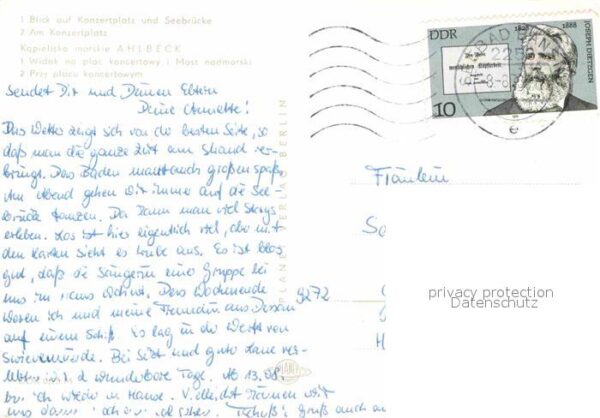 1 Blick auf Konzertplatz und Seebrücke
2 Am Konzertplatz
Kąpielisko morskie AHLBECK
1 Widok na plac koncertowy i most nadmorski
2 Przy placu koncertowym
Sendet Dir und Deinen Eltern
Deine Annette!
Das Wetter zeigt sich von der besten Seite, so
daß man die ganze Zeit am Strand ver-
bringt. Das Baden macht auch großen Spaß.
Am Abend gehen wir immer auf die See-
brücke tanzen. Da kann man viel
erleben. Los ist hier eigentlich viel, aber mit
den Karten sieht es trübe aus. Es ist bloß
gut, daß die Sängerin einer Gruppe bei
uns im Haus wohnt. Das Wochenende
waren ich und meine Freundin aus Dessau
auf einem Schiff. Es lag in der Werft von
Swinemünde. Bei Sekt und guter Laune ver-
lebten wir 2 wunderbare Tage. Ab 13.08
bin ich wieder zu Hause. Vielleicht können wir
uns dann sehen. Tschüß! Gruß auch an
PLANET-VERLAG BERLIN
DDR
10
1828 1888
JOSEPH DIETZGEN
2252
-8.-8
e
Fräulein
9272
privacy protection
Datenschutz